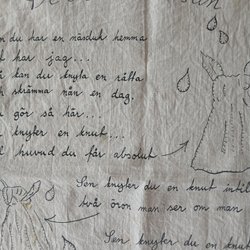 du har en näsduk hemma
har jag...
kan du knyta en råtta
skrämma når en dag.
gör så här...
knyter en knut...
huvud du får absolut
Sen knyter du en knut intill
två öron man ser om man
Sen knyter du en